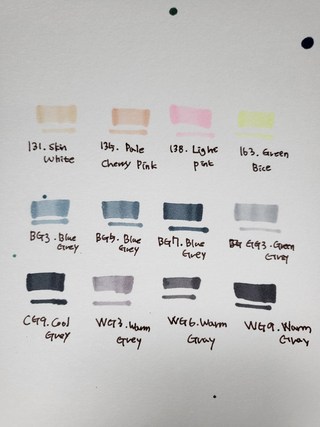 131. Skin
White
134. Pale
Cherry Pink
138. Light
Pink
163. Green
Bice
BG3. Blue
Grey
BG5. Blue
Grey
BG7. Blue
Grey
GG3. Green
Grey
CG9. Cool
Grey
WG3. Warm
Grey
WG6. Warm
Gray
WG9. Warm
Gray